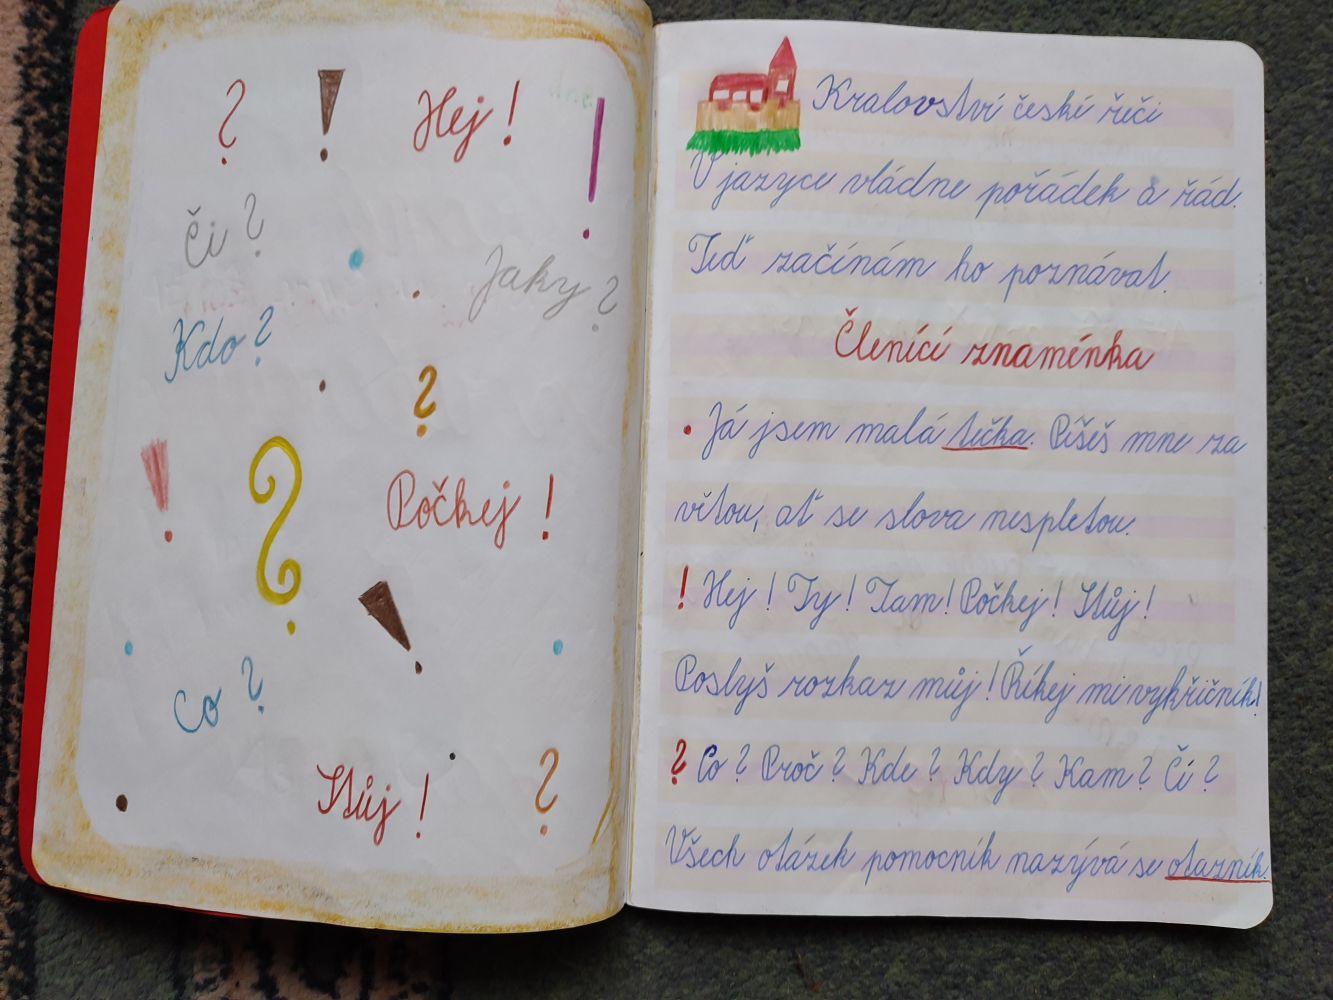 ? ! Hej! !
Či?
Jaky?
Kdo?
?
! ? Počkej!
!
Co?
Stůj! ?
Kralovství české řeči
V jazyce vládne pořádek a řád.
Teď začínám ho poznávat.
Členící znaménka
• Já jsem malá tečka. Píšeš mne za
větou, ať se slova nespletou.
! Hej! Ty! Tam! Počkej! Stůj!
Poslyš rozkaz můj! Říkej mi vykřičník!
? Co? Proč? Kde? Kdy? Kam? Čí?
Všech otázek pomocník nazývá se otazník.